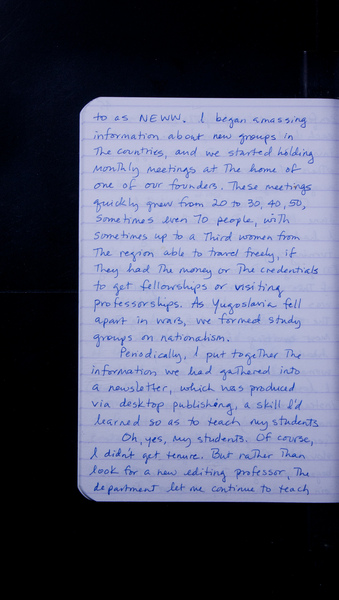 to as NEWW. I began amassing
information about new groups in
the countries, and we started holding
monthly meetings at the home of
one of our founders. These meetings
quickly grew from 20 to 30, 40, 50,
sometimes even 70 people, with
sometimes up to a third women from
the region able to travel freely, if
they had the money or the credentials
to get fellowships or visiting
professorships. As Yugoslavia fell
apart in wars, we formed study
groups on nationalism.
Periodically, I put together the
information we had gathered into
a newsletter, which was produced
via desktop publishing, a skill I'd
learned so as to teach my students
Oh, yes, my students. Of course,
I didn't get tenure. But rather than
look for a new editing professor, the
department let me continue to teach